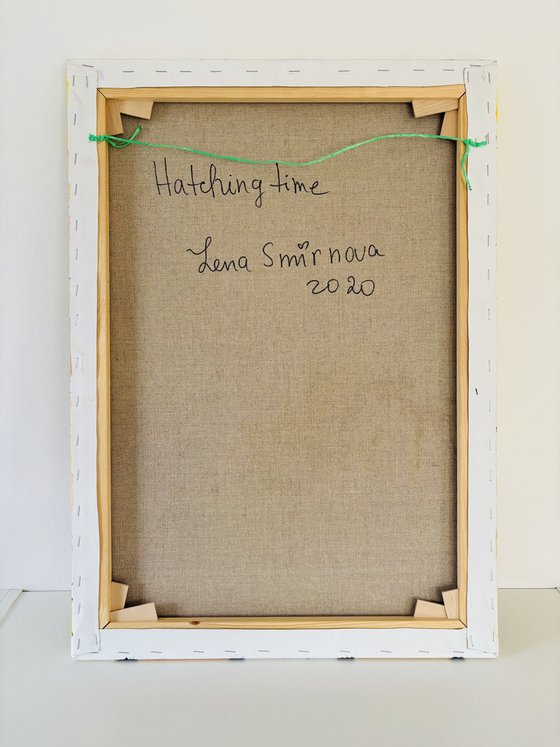 Hatching time
Lena Smirnova
2020